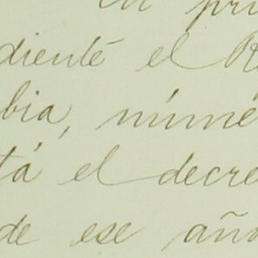 en pri
diente el R
bia, núme
tá el decre
de ese año